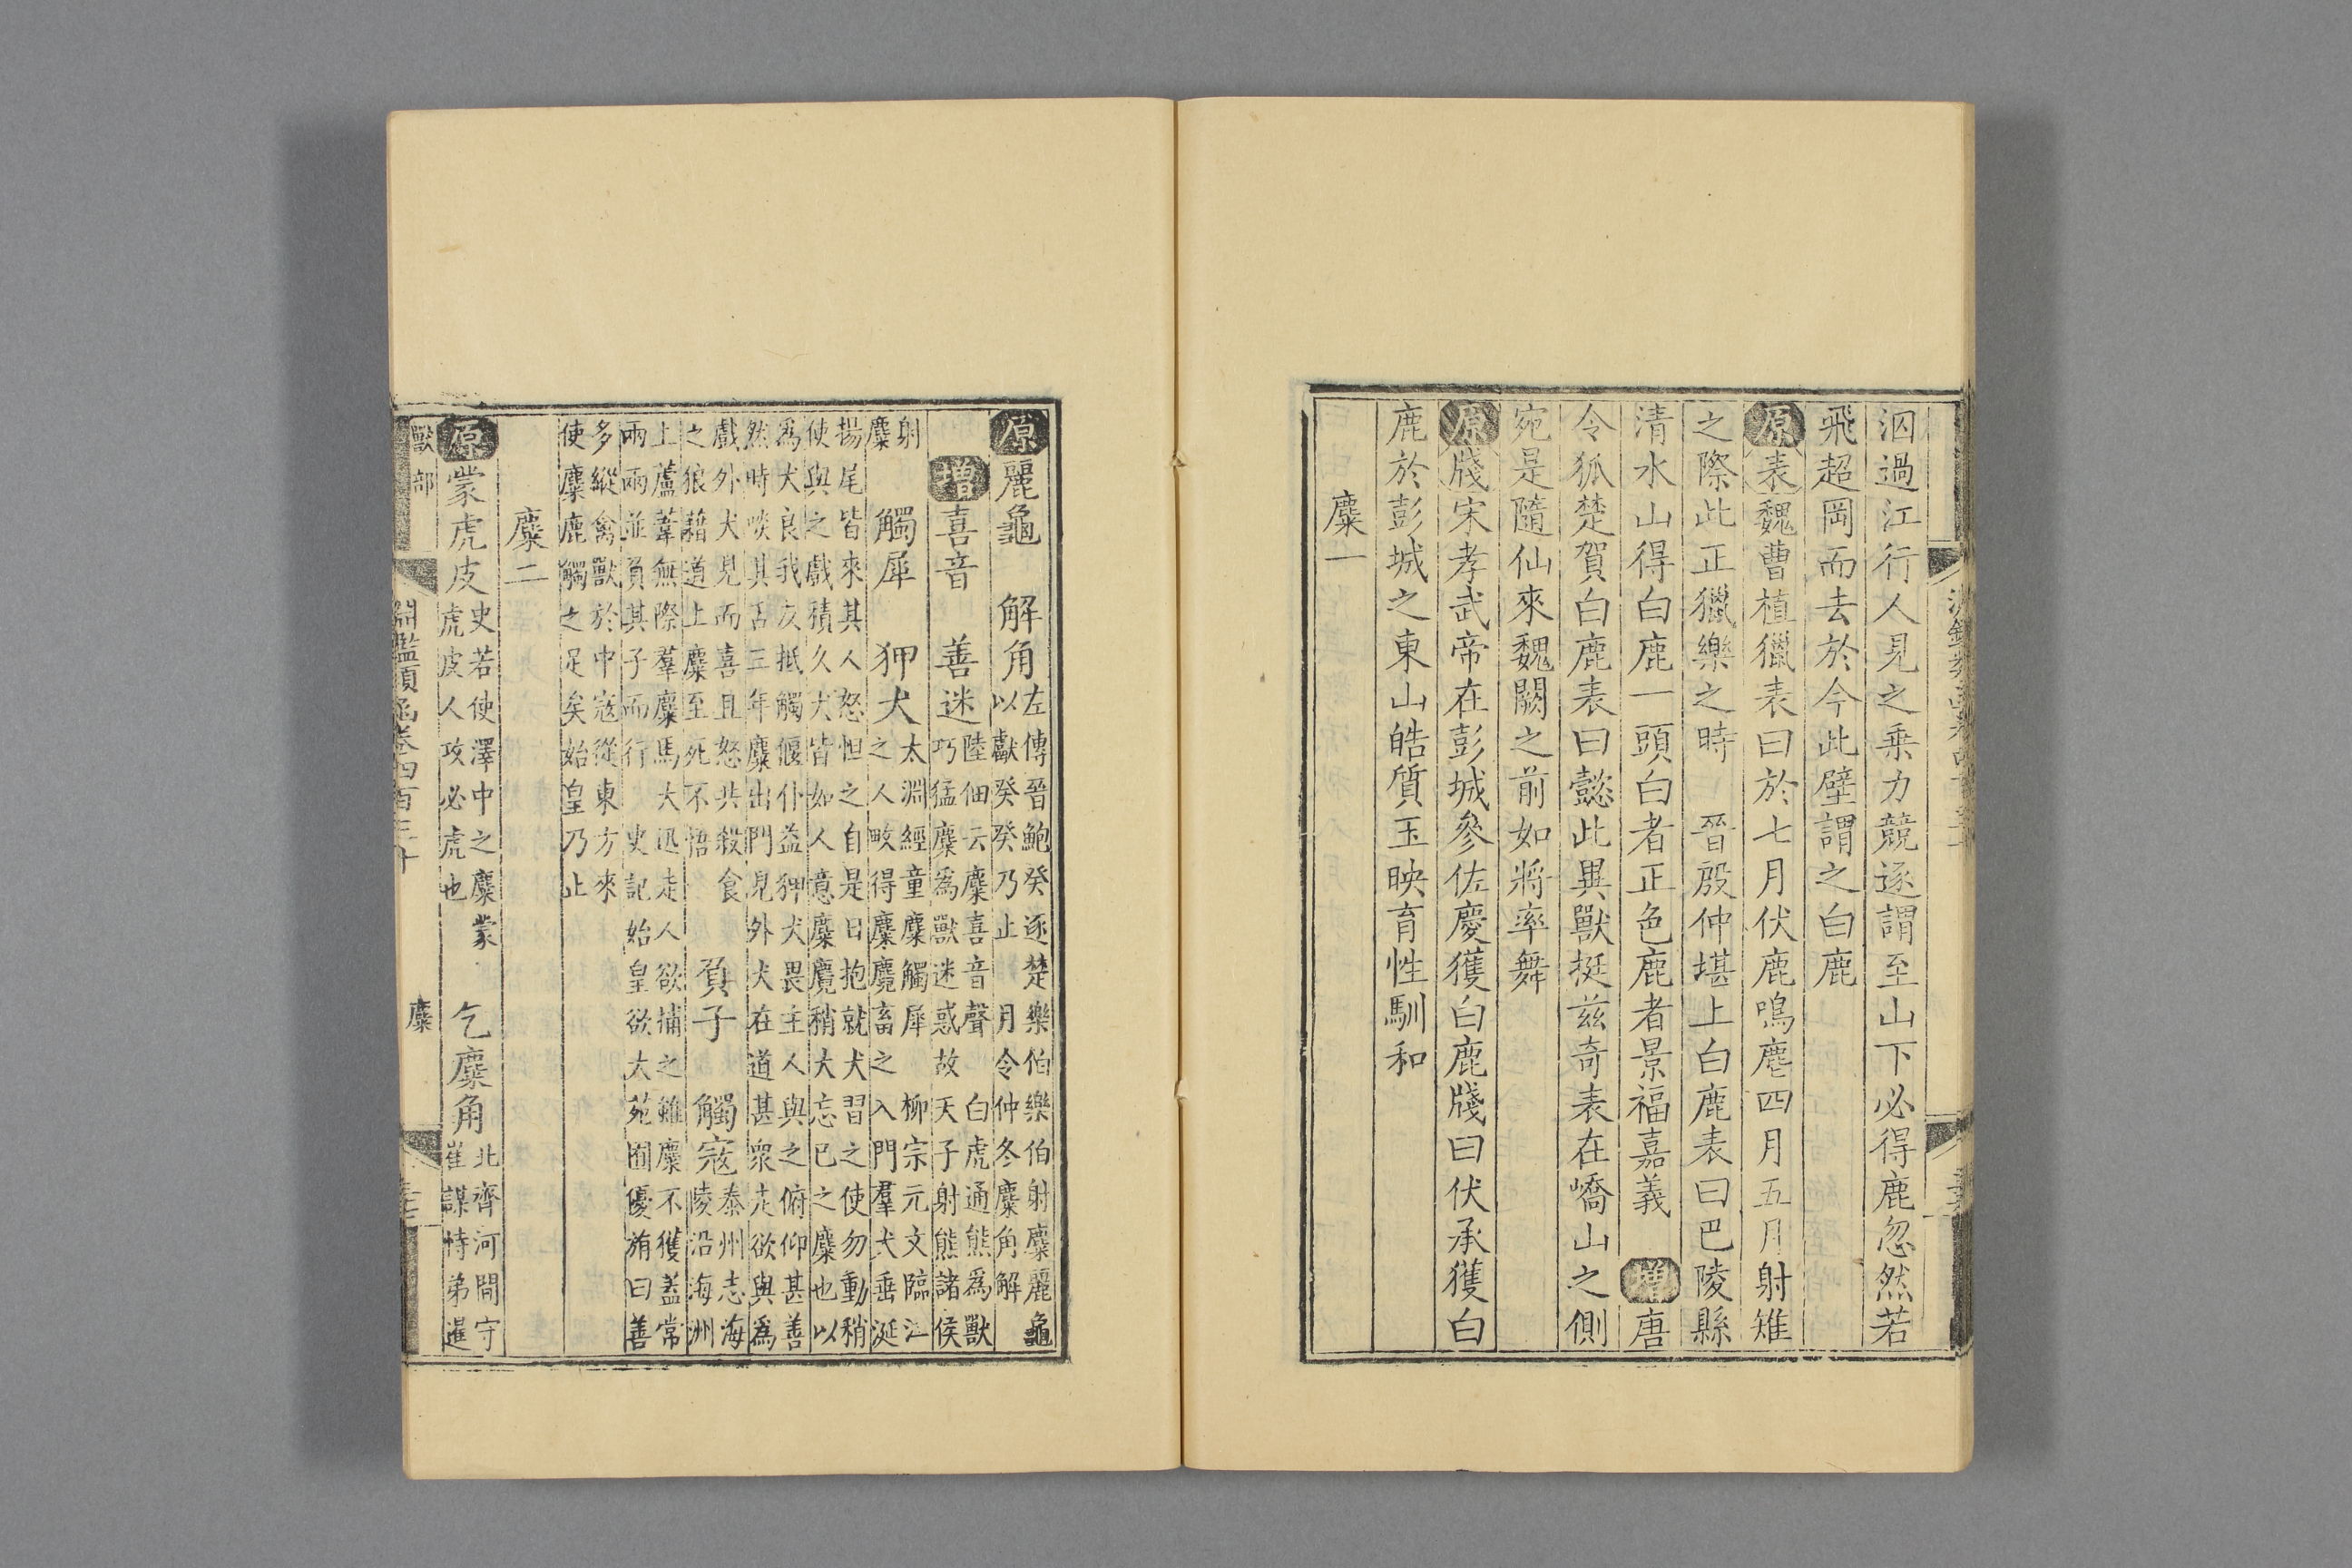 泅過江行人見之乗力競逐謂至山下必得鹿忽然若
飛超岡而去於今此壁謂之白鹿
原表魏曹植獵表曰於七月伏鹿鳴麀四月五月射雉
之際此正獵樂之時 晉殷仲堪上白鹿表曰巴陵縣
清水山得白鹿一頭白者正色鹿者景福嘉義 增唐
令狐楚賀白鹿表曰懿此異獸挺兹奇表在嶠山之側
宛是隨仙來魏闕之前如將率舞
原牋宋孝武帝在彭城參佐慶獲白鹿牋曰伏承獲白
鹿於彭城之東山皓質玉映育性馴和
麋一
原麗龜 解角
左傳晉鮑癸逐楚樂伯樂伯射麋麗龜
以獻癸癸乃止 月令仲冬麋角解
增喜音 善迷
陸佃云麋喜音聲 白虎通熊為獸
巧猛麋為獸迷惑故天子射熊諸侯
射
麋
觸犀 狎犬
太淵經童麋觸犀 柳宗元文臨江
之人畋得麋麑畜之入門羣犬垂涎
揚尾皆來其人怒怛之自是日抱就犬習之使勿動稍
使與之戲積久犬皆如人意麋麑稍大忘已之麋也以
為犬良我友抵觸偃仆益狎犬畏主人與之俯仰甚善
然時啖其舌三年麋出門見外犬在道甚衆走欲與為
戲外犬見而喜且怒共殺食
之狼藉道上麋至死不悟
負子 觸寇
泰州志海
陵沿海洲
上蘆葦無際羣麋馬大迅走人欲捕之雖麋不獲蓋常
兩兩並負其子而行 史記始皇欲大苑囿優旃曰善
多縱禽獸於中寇從東方來
使麋鹿觸之足矣始皇乃止
麋二
原蒙虎皮
史若使澤中之麋蒙
虎皮人攻必虎也
乞麋角
北齊河間守
崔謀恃弟暹
獸部 淵鑑類函卷四百三十 麋